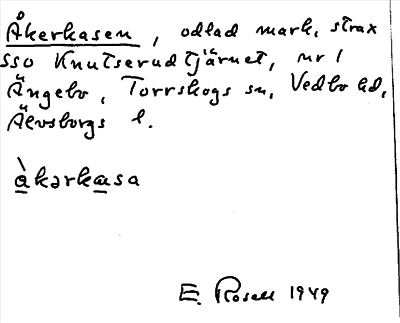 Åkerkasen, odlad mark, strax
SSO Knutserudtjärnet, nr 1
Ängebo, Torrskogs sn, Vedbo hd,
Älvsborgs l.
àkərkasa
E. Rosell 1949